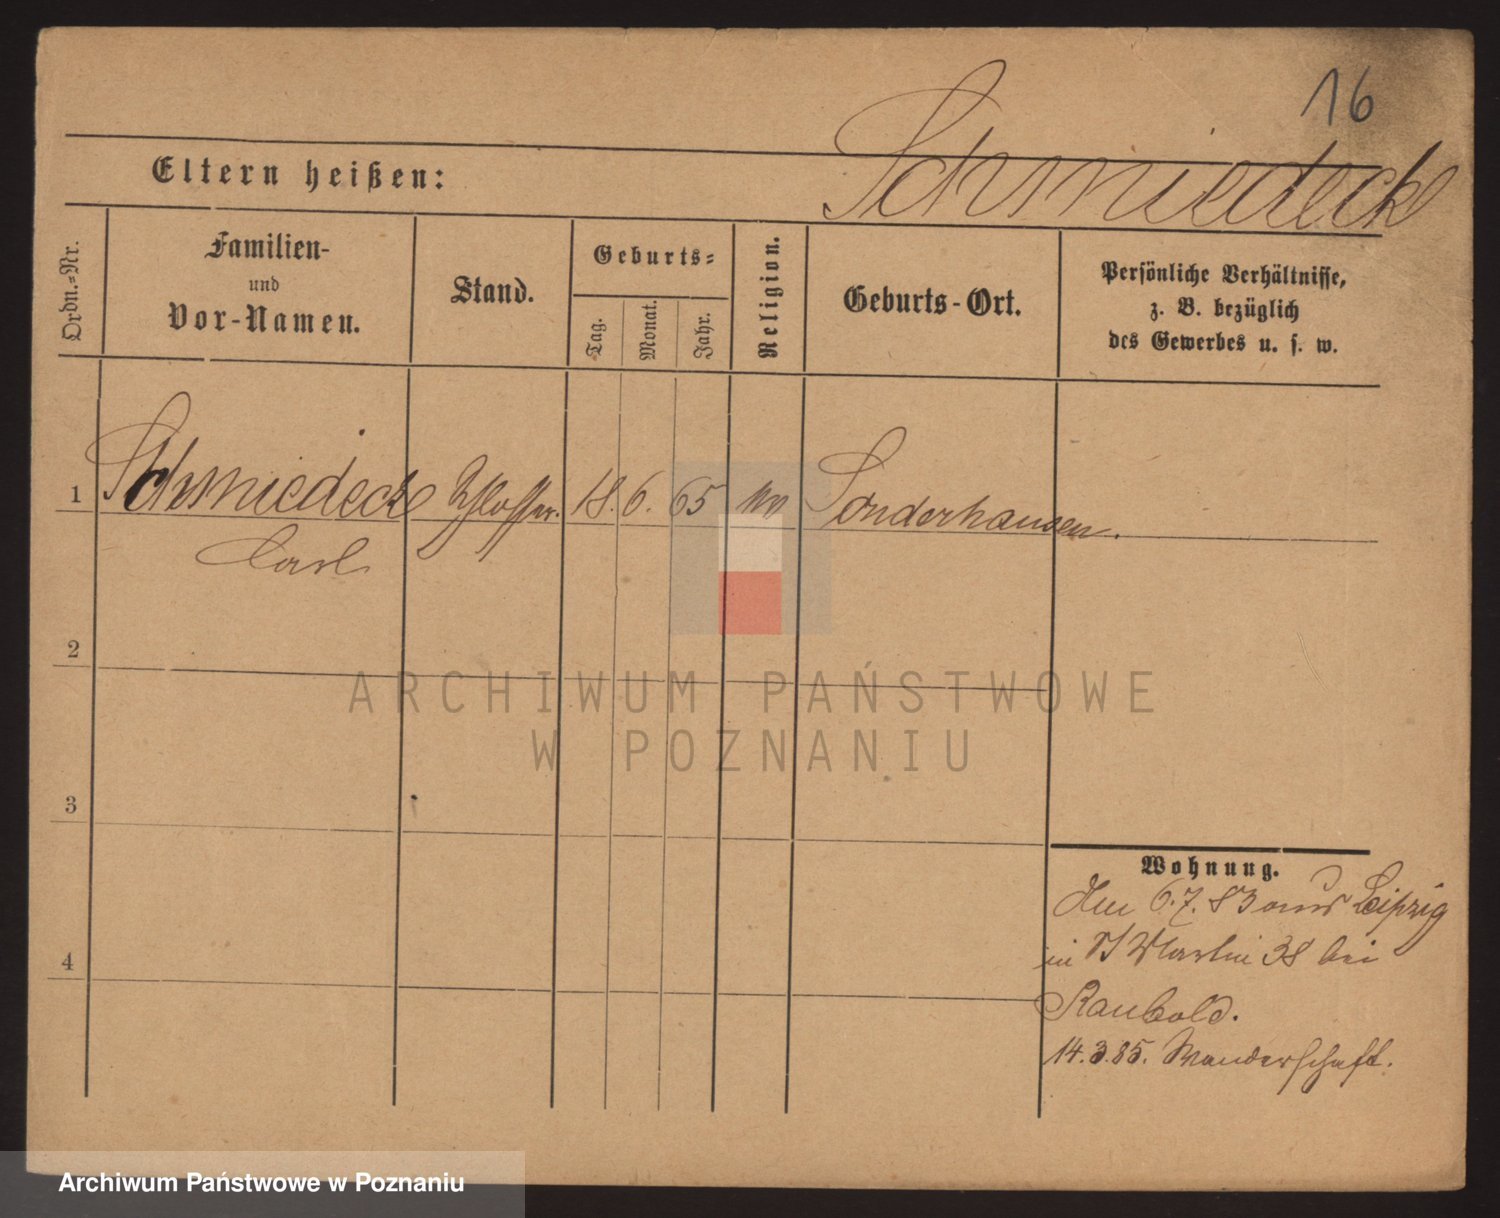 16
Schmiedeck
Eltern heißen:
Ordn.=Nr.
Familien-
und
Vor-Namen.
Stand.
Geburts=
Tag.
Monat.
Jahr.
Religion.
Geburts-Ort.
Persönliche Verhältnisse,
z. B. bezüglich
des Gewerbes u. s. w.
1 Schmiedeck Schlosser. 18. 6. 65 Sonderhausen.
Carl
2
ARCHIWUM PAŃSTWOWE
W POZNANIU
3
Wohnung.
6.7.83 aus Leipzig
in St Martin 38 bei
Raubold.
4
14.3.85. Wanderschaft.
Archiwum Państwowe w Poznaniu